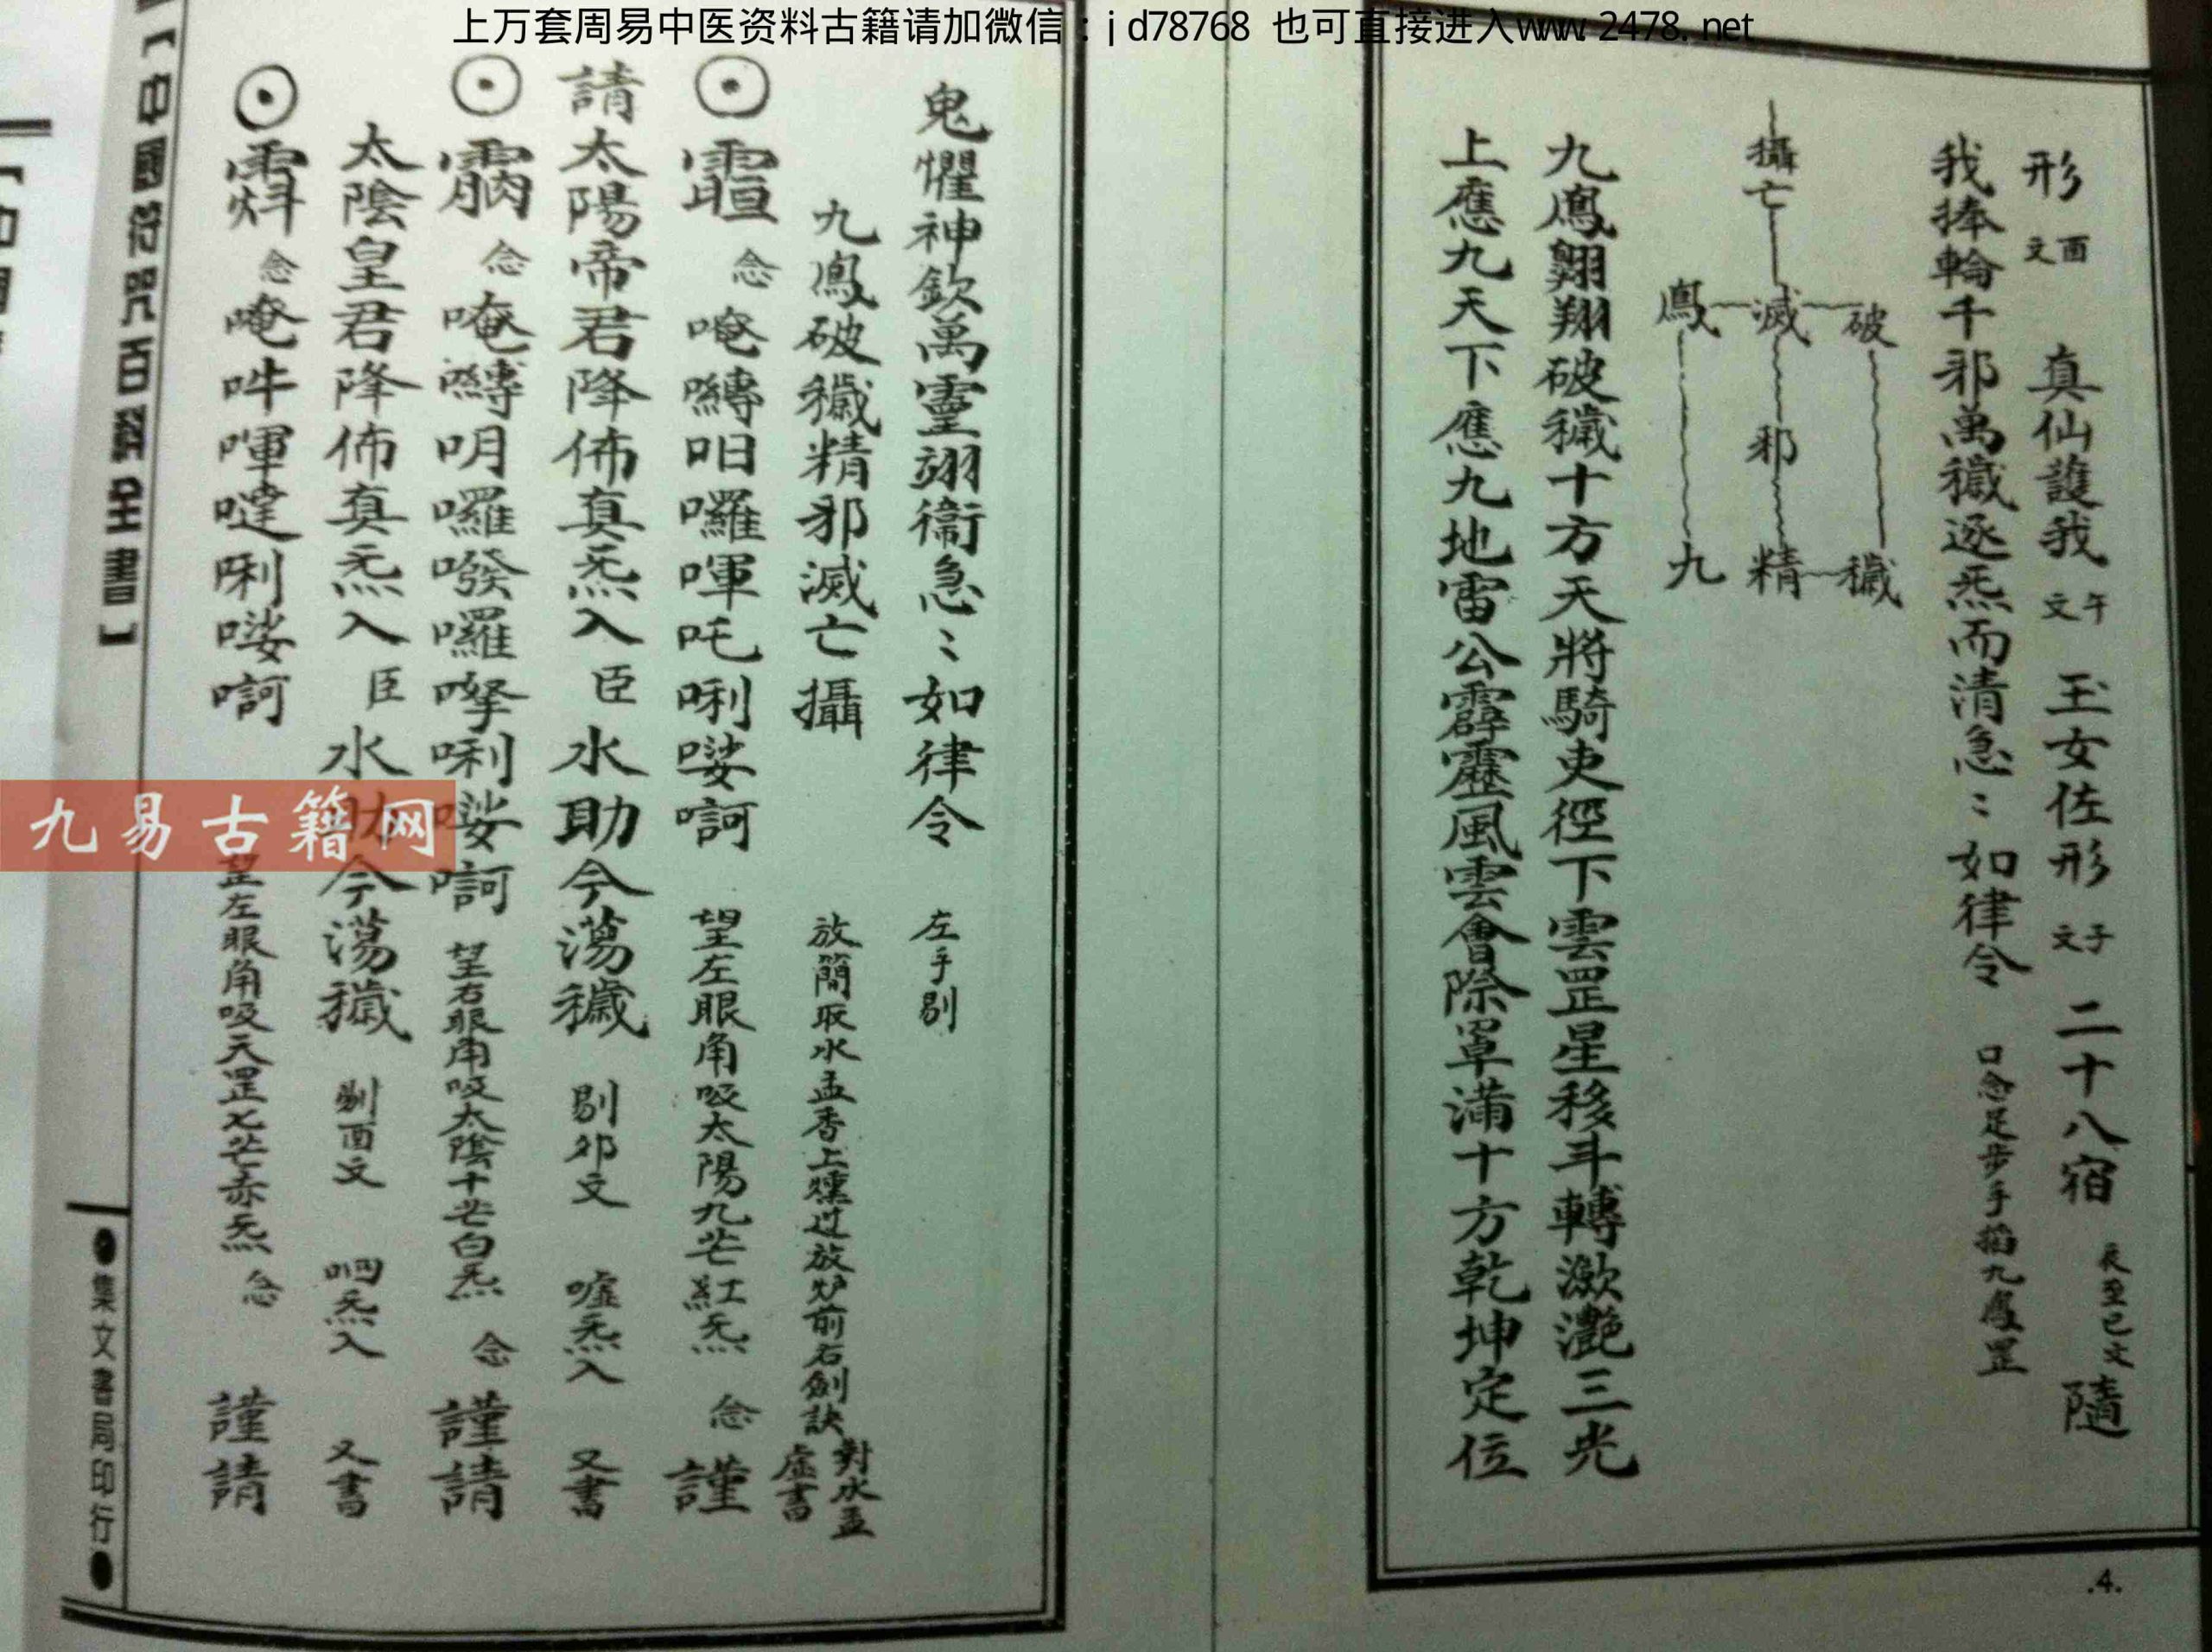 上万套周易中医资料古籍请加微信：jd78768 也可直接进入www.2478.net
形 酉文 真仙護我 午文 玉女佐形 子文 二十八宿 辰至巳文 隨
我捧輪千邪萬穢逐炁而清急々如律令 口念足步手掐九鳳罡
攝
亡
鳳 滅 破
邪
九 精 穢
九鳳翱翔破穢十方天將騎吏徑下雲罡星移斗轉瀲灧三光
上應九天下應九地雷公霹靂風雲會除罩滿十方乾坤定位
.4.
鬼懼神欽萬靈翊衞急々如律令 左手剔
九鳳破穢精邪滅亡攝 放簡取水盂香上燻过放炉前右劍訣對水盂虛書
念唵囀呾囉㖞吒唎娑訶 望左眼角吸太陽九芒紅炁 念 謹
請太陽帝君降佈真炁入 臣 水助今蕩穢 剔卯文 噓炁入 又書
念唵囀明囉㗶囉唎娑訶 望右眼角吸太陰十芒白炁 念 謹請
太陰皇君降佈真炁入 臣 水助今蕩穢 剔酉文 呬炁入 又書
念唵吽喗噠唎娑訶 望左眼角吸天罡七芒赤炁 念 謹請
【中國符咒百科全書】
●集文書局印行●
九易古籍网